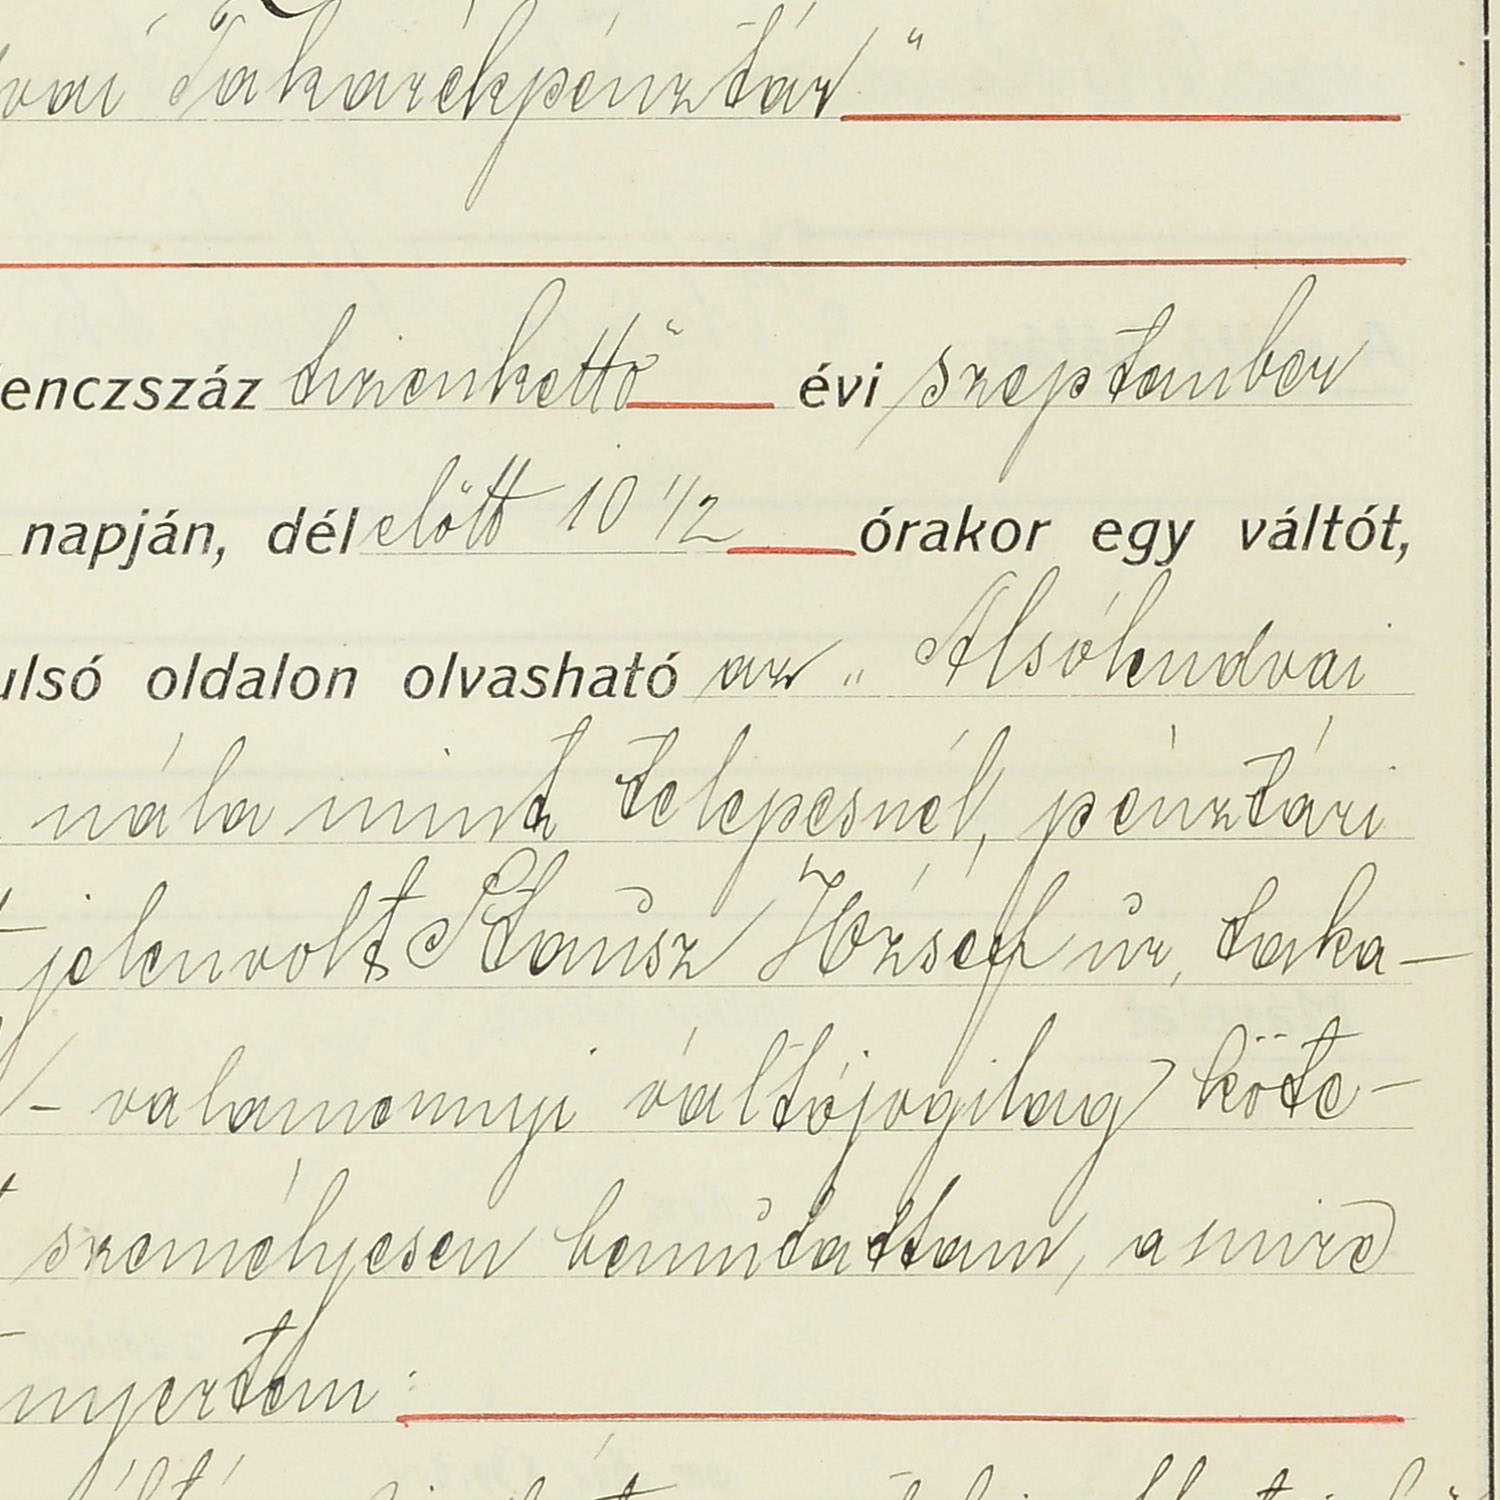 vai Takarékpénztár"
enczszáz tizenkettő évi szeptember
napján, délelőtt 10 1/2 órakor egy váltót,
ulsó oldalon olvasható az „Alsólendvai
nála mint telepesnél, pénztári
jelenvolt Stausz József úr, taka-
- valamennyi váltójogilag köte-
személyesen bemutattam, a mire
nyertem: